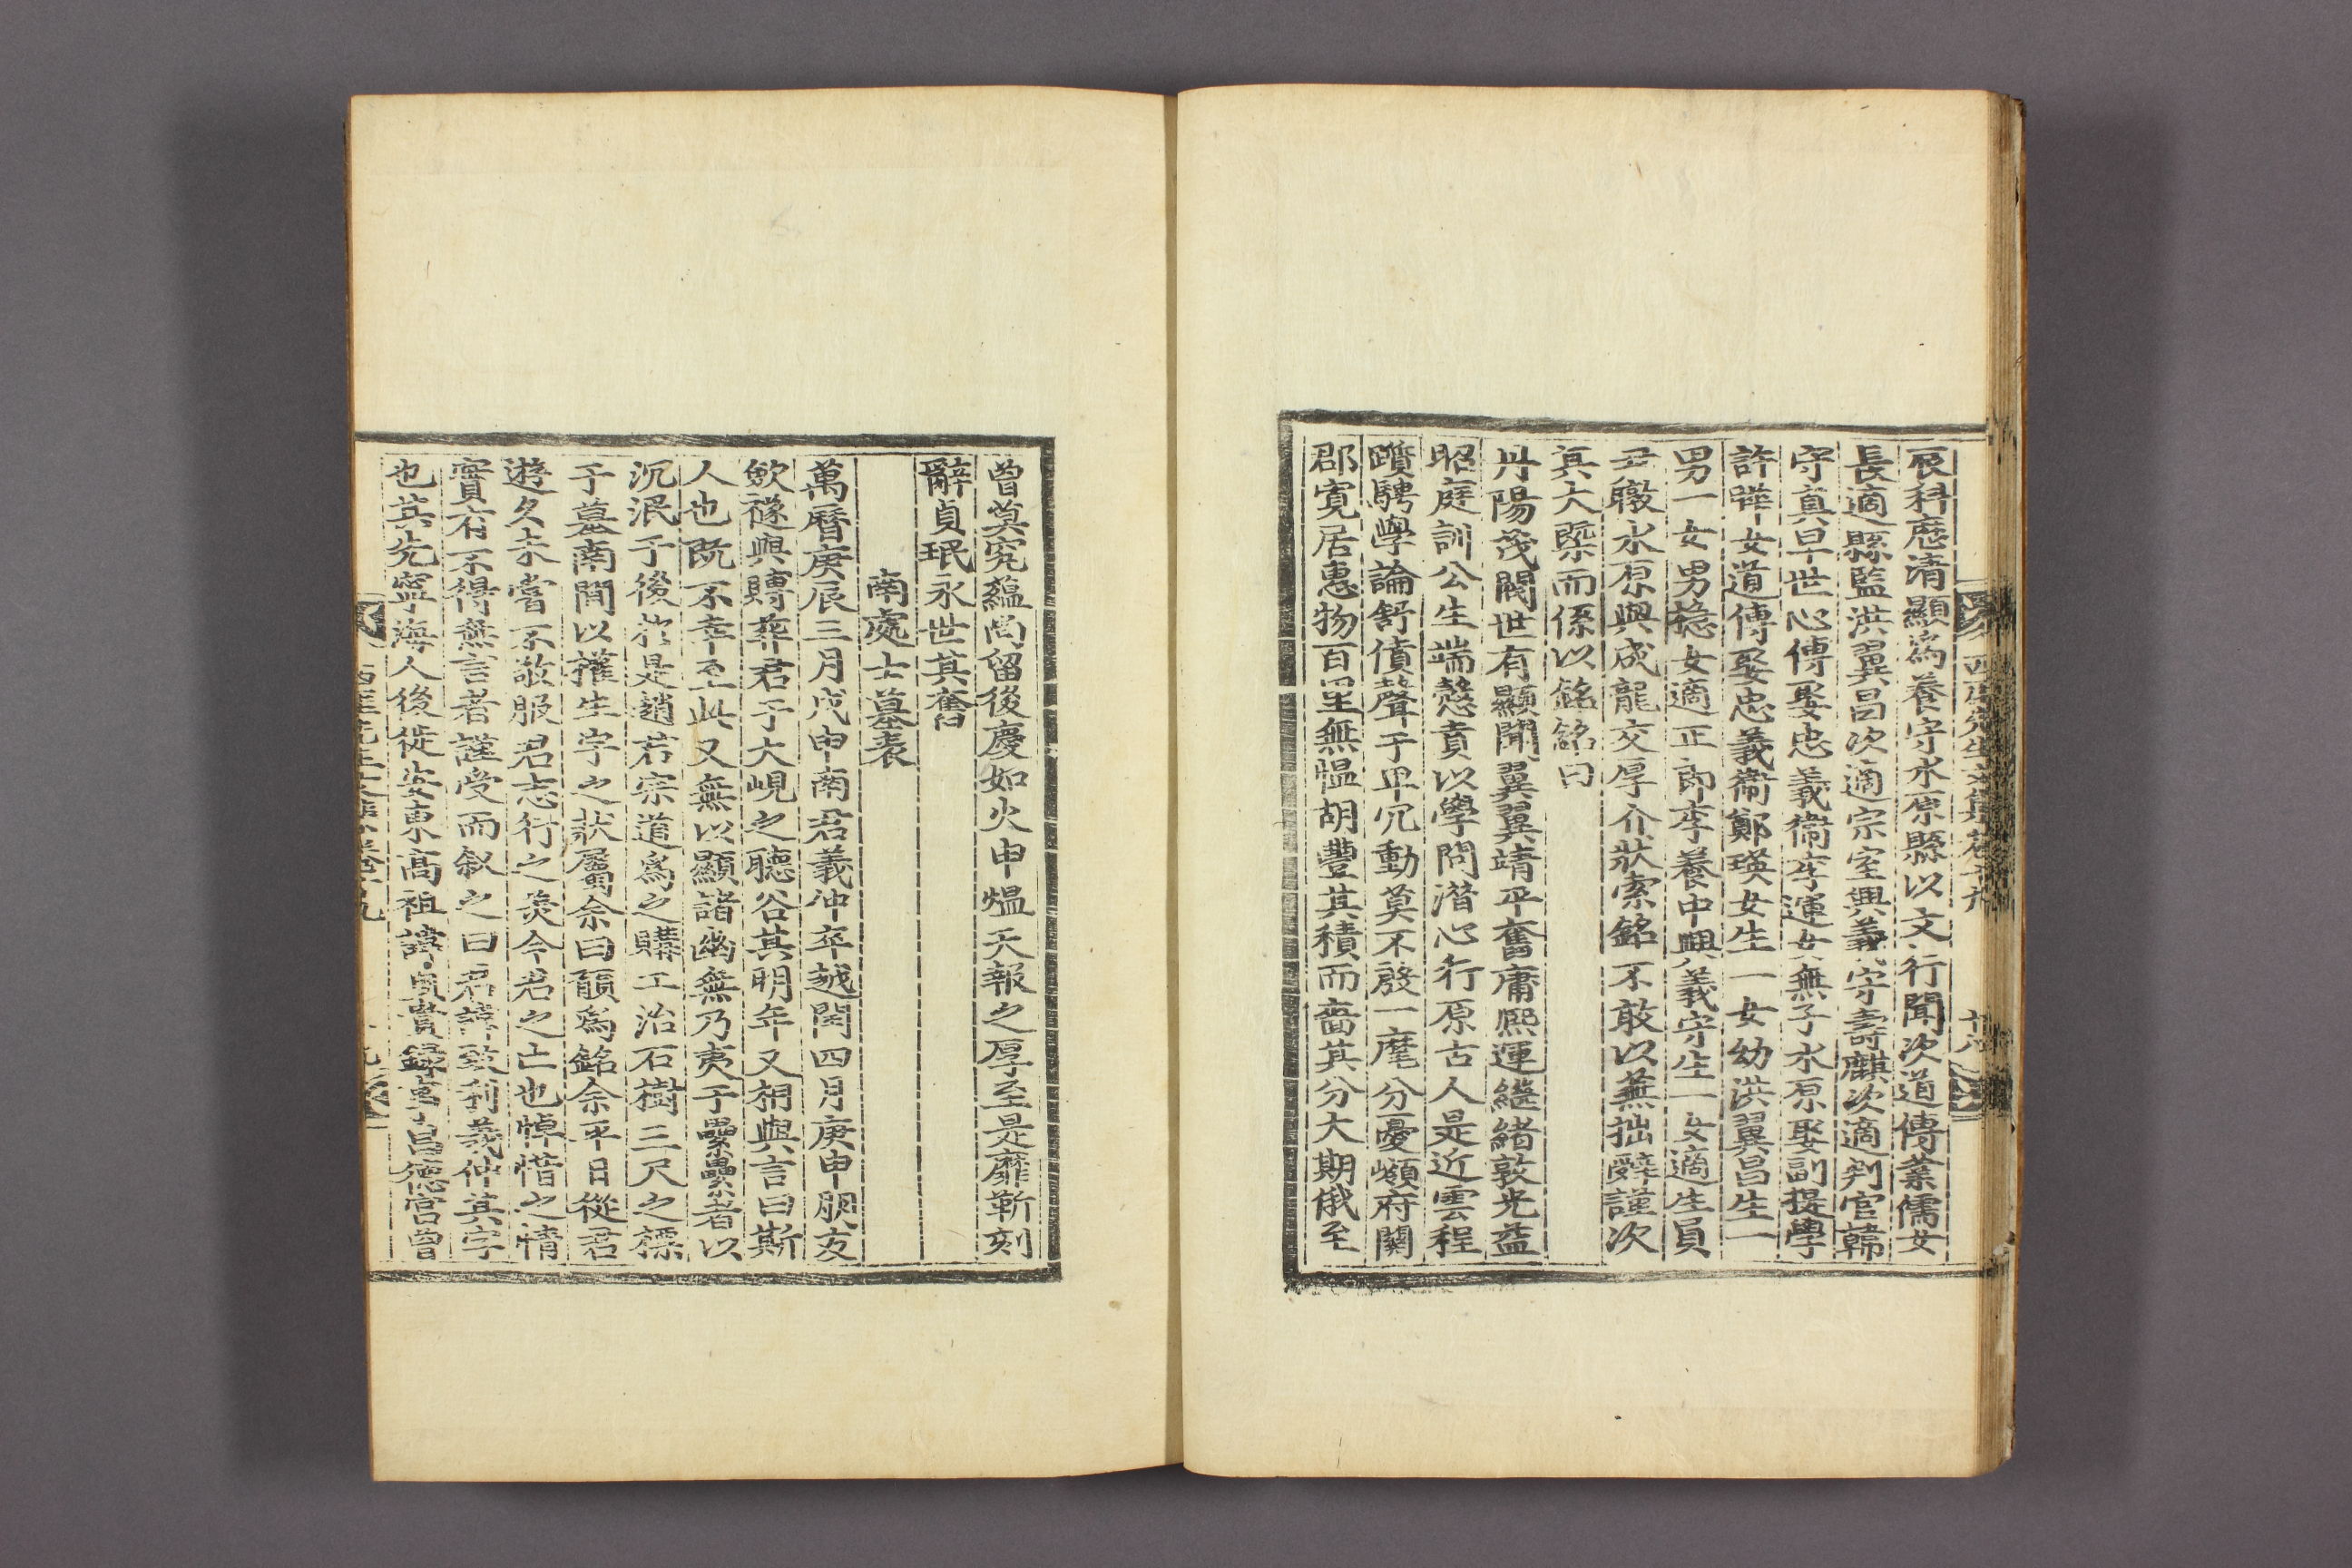 西厓先生文集卷十九 十八
辰科歷清顯爲養守水原縣以文行聞次道傳業儒女
長適縣監洪翼昌次適宗室興義守壽麒次適判官韓
守眞早世心傳娶忠義衛李運女無子水原娶副提學
許曄女道傳娶忠義衛鄭瑛女生一女幼洪翼昌生一
男一女男檍女適正郞李養中興義守生一女適生員
尹皦水原與成龍交厚介狀索銘不敢以蕪拙辭謹次
其大槩而係以銘銘曰
丹陽茂閥世有顯聞翼翼靖平奮庸熙運繼緖敦光益
昭庭訓公生端慤賁以學問潛心行原古人是近雲程
躓騁學論舒僨聲于卑冗動莫不啓一麾分憂嬾府闕
郡寬居惠物百里無慍胡豐其積而嗇其分大期俄至
曾莫究蘊尙留後慶如火申熅天報之厚至是靡靳刻
辭貞珉永世其奮
南處士墓表
萬曆庚辰三月戊申南君義仲卒越閏四月庚申朋友
歛襚與賻葬君于大峴之聽谷其明年又相與言曰斯
人也旣不幸至此又無以顯諸幽無乃夷于纍纍者以
沉泯于後於是趙君宗道爲之購工治石樹三尺之標
于墓南聞以權生宇之狀屬余曰願爲銘余平日從君
遊久未嘗不敬服君志行之美今君之亡也悼惜之情
實有不得無言者謹受而叙之曰君諱致利義仲其字
也其先寧海人後徙安東高祖諱貴錄事昌德宮曾
西厓先生文集卷十九 十九